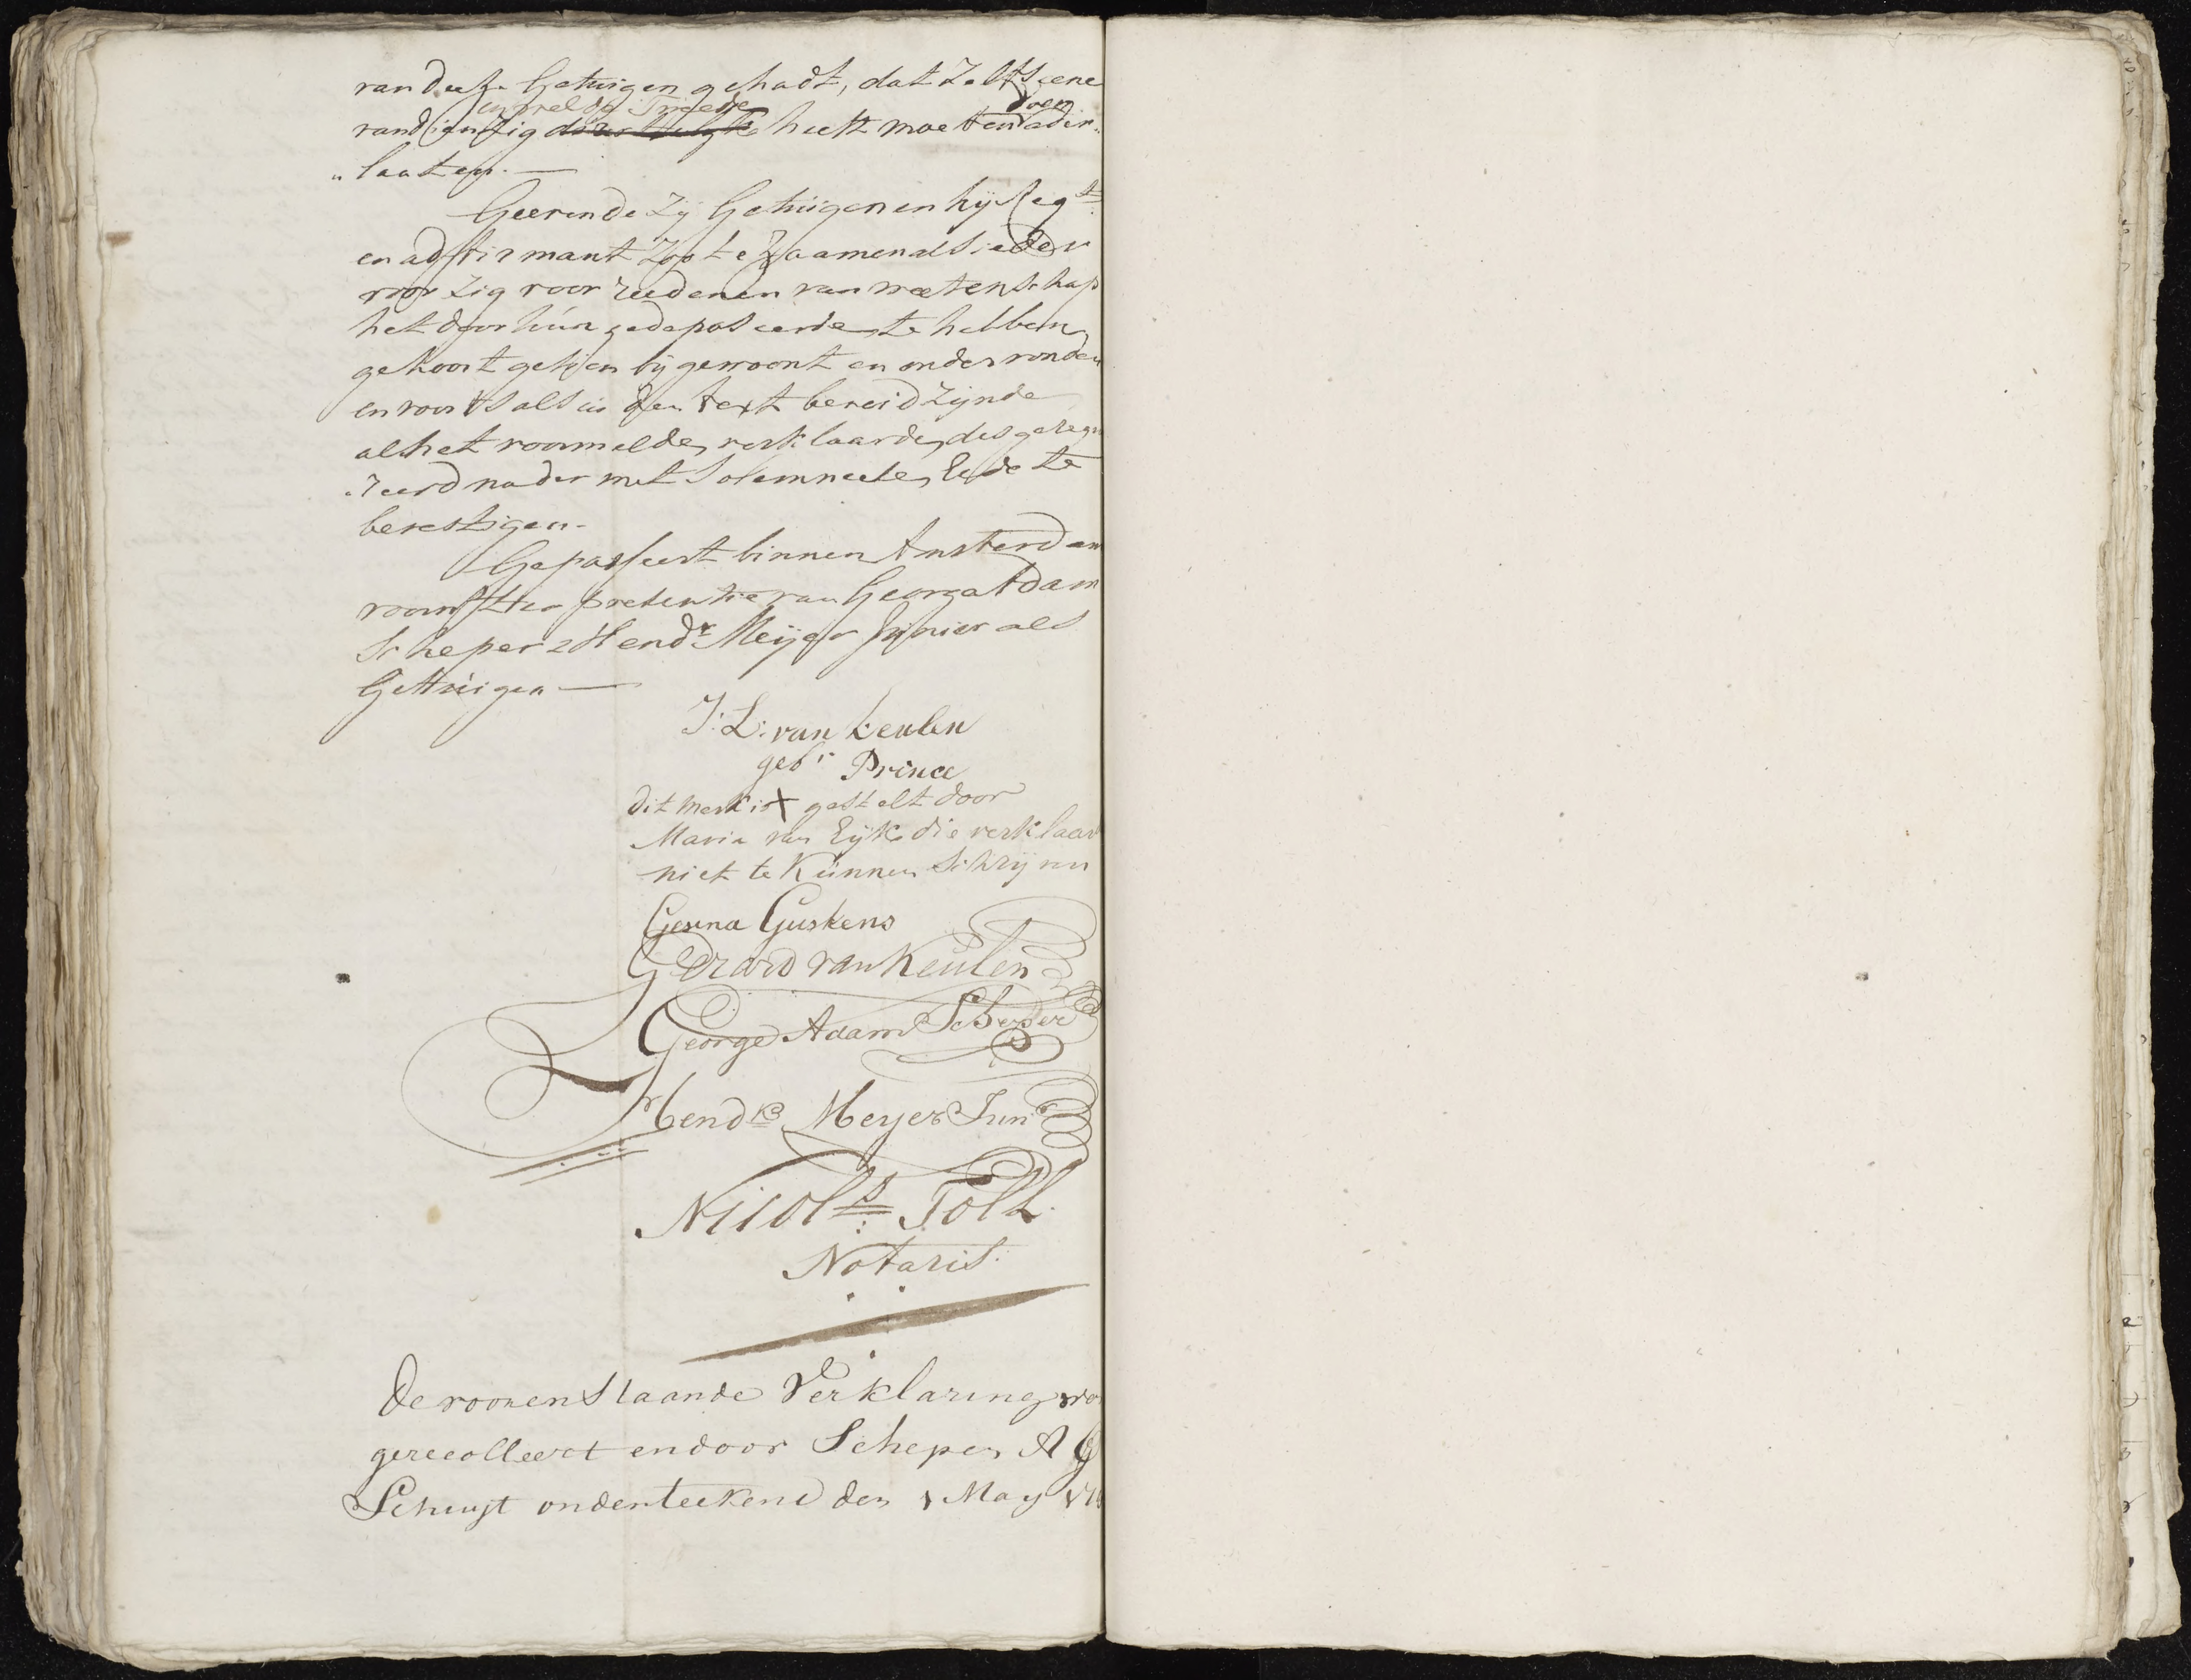 van deeze Getuigen gehadt, dat zelfs eene
en wel de Tweede doen
van dien zig heeft moeten ader„
„laaten. —
Geevende zij Getuigen en hij Reqt.
en adfirmant zoo te zaamen als ieder
voor zig voor reedenen van weetenschap
het door hún gedeposeerde te hebben
gehoort gezien bijgewoont en ondervonden
en voorts als in den text bereid zijnde
al het voormelde verklaarde des gereqi„
„reerd nader met Solemneele Eede te
bevestigen.
Gepasseert binnen Amsterdam
voormt. ter presentie van George Adam
Scheper & Hendk. Meijer Junior als
Getúigen —
J: L: van Keulen
geb: Prince
dit merk is X gestelt door
Maria van Eijk die verklaar
niet te Künnen Schrijven
Gesina Guskens
Gerard van Keulen
George Adam Scheper
Hendk Meyer Junr
Nicols. Toll
Notaris.
De voorenstaande Verklaring
gerecolleert en door Schepen A G
Schuyt onderteekend den 1 May 17